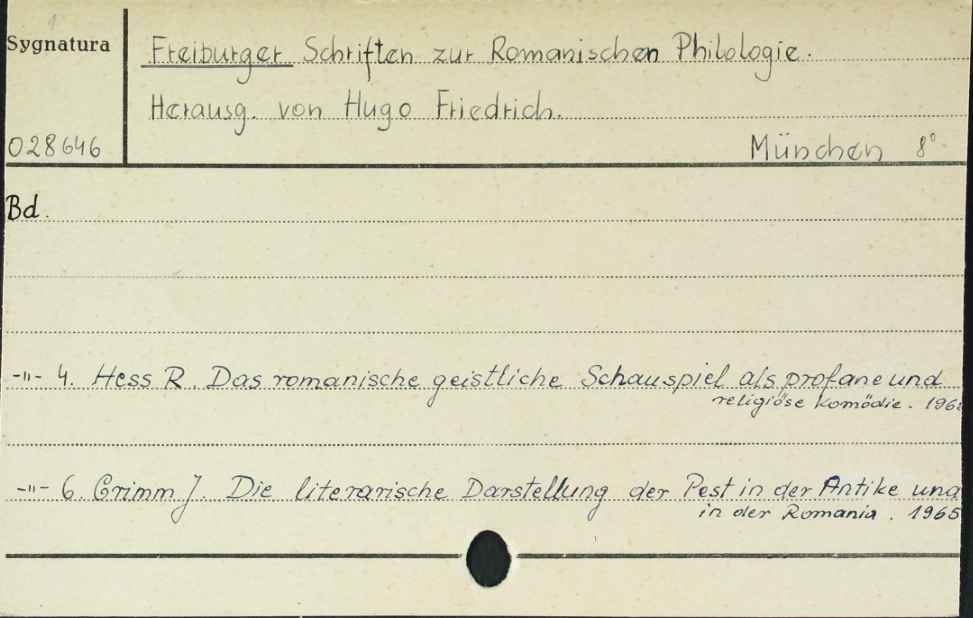 1
Sygnatura
Freiburger Schriften zur Romanischen Philologie.
Herausg. von Hugo Friedrich.
028646
München 8°
Bd.
-"- 4. Hess R. Das romanische geistliche Schauspiel als profane und
religiöse Komödie.
-"- 6. Grimm J. Die literarische Darstellung der Pest in der Antike und
in der Romania. 1965